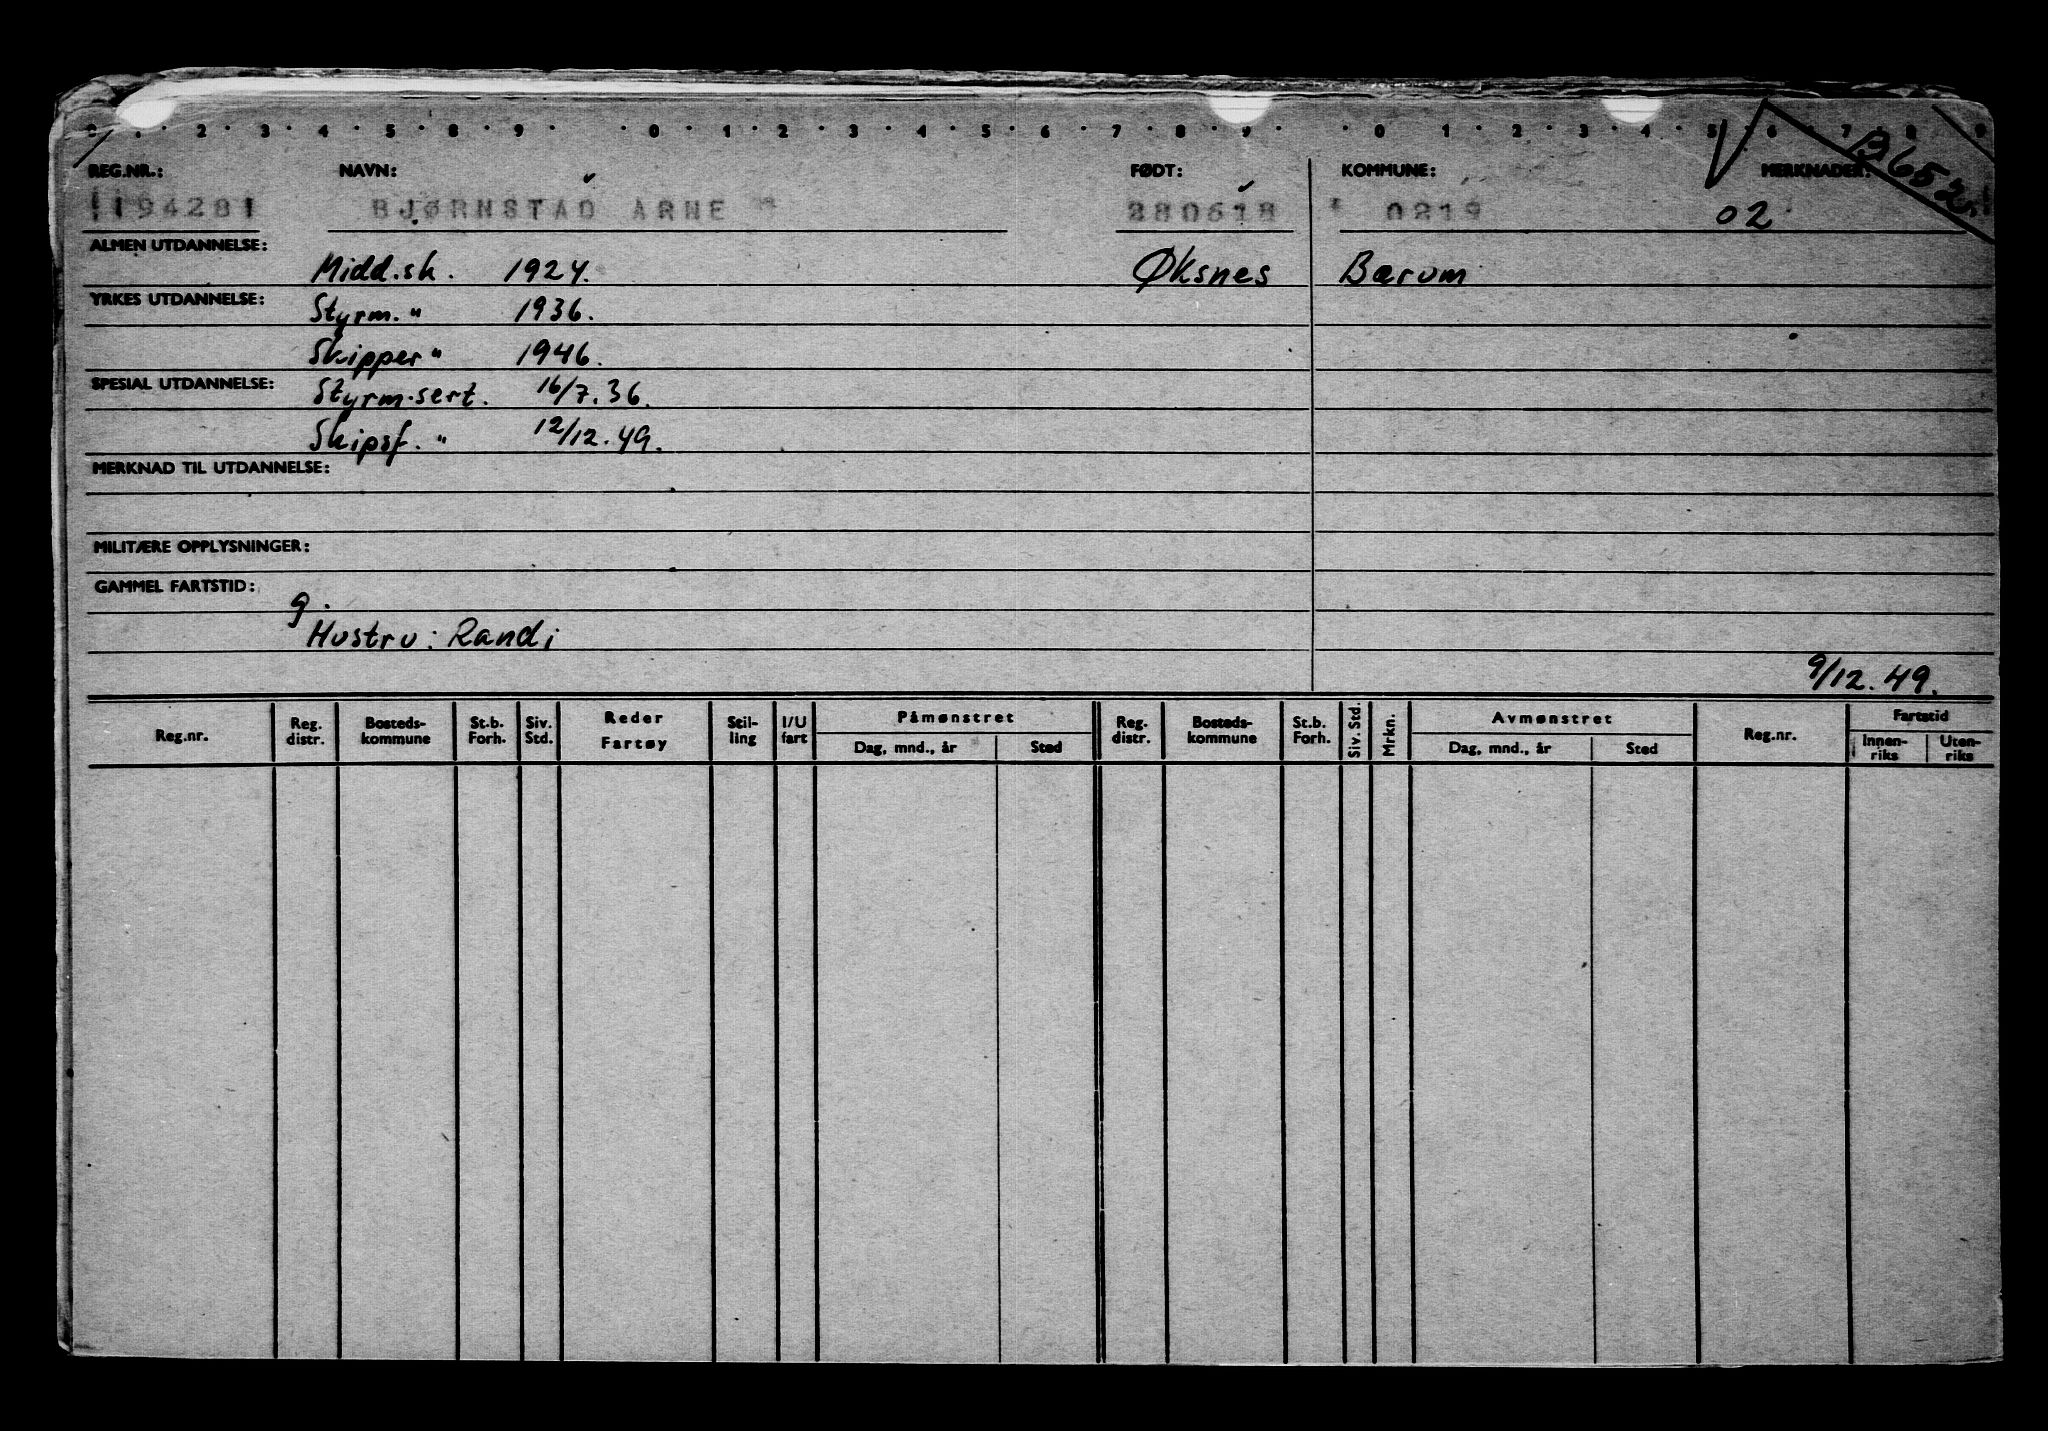 2 3 4 5 8 9 0 1 2 3 4 5 6 7 8 9 0 1 2 3 4 5 6 7 8 9
REG.NR.: NAVN: FØDT: KOMMUNE: MERKNADER:
1194281 BJØRNSTAD ARNE 280618 0219 02 13652
ALMEN UTDANNELSE: Midd.sk. 1924. Øksnes Bærum
YRKES UTDANNELSE: Styrm. " 1936.
Skipper " 1946.
SPESIAL UTDANNELSE: Styrm.sert. 16/7.36.
Skipsf. " 12/12.49.
MERKNAD TIL UTDANNELSE:
MILITÆRE OPPLYSNINGER:
GAMMEL FARTSTID:
g.
Hustru: Randi
9/12.49.
Reg.nr. Reg. distr. Bosteds-kommune St.b. Forh. Siv. Std. Reder Fartøy Stil-ling I/U fart Påmønstret Dag, mnd., år Sted Reg. distr. Bosteds-kommune St.b. Forh. Siv. Std. Mrkn. Avmønstret Dag, mnd., år Sted Reg.nr. Fartstid Innen-riks Uten-riks